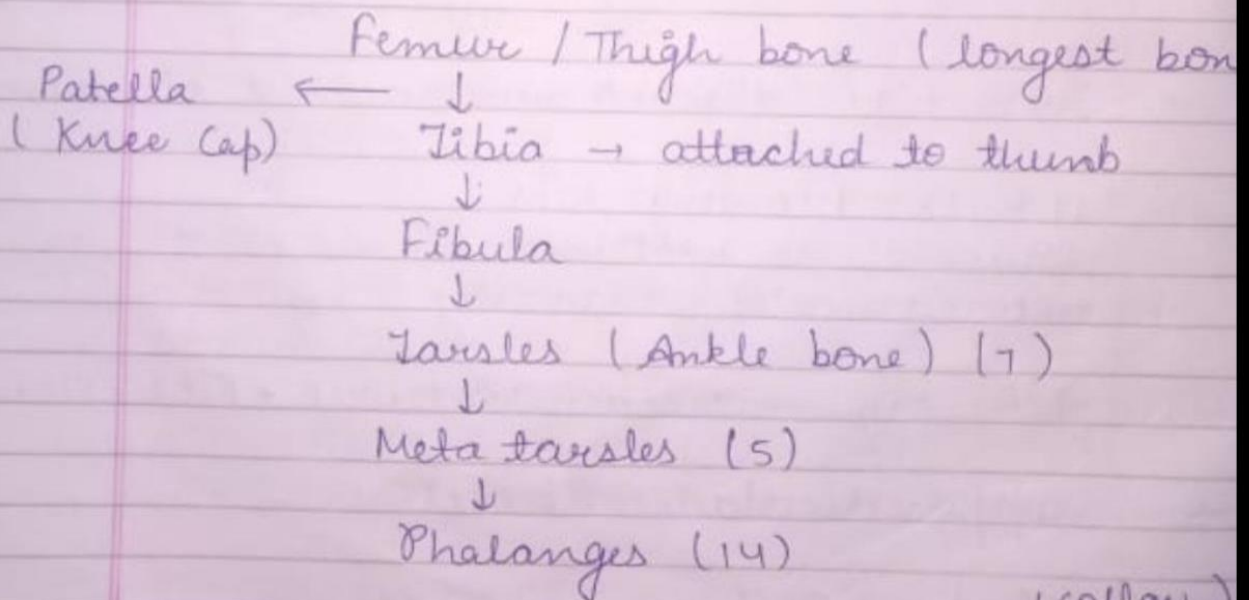 Femur / Thigh bone (longest bon
Patella ← ↓
(Knee Cap) Tibia → attached to thumb
↓
Fibula
↓
Tarsles (Ankle bone) (7)
↓
Meta tarsles (5)
↓
Phalanges (14)